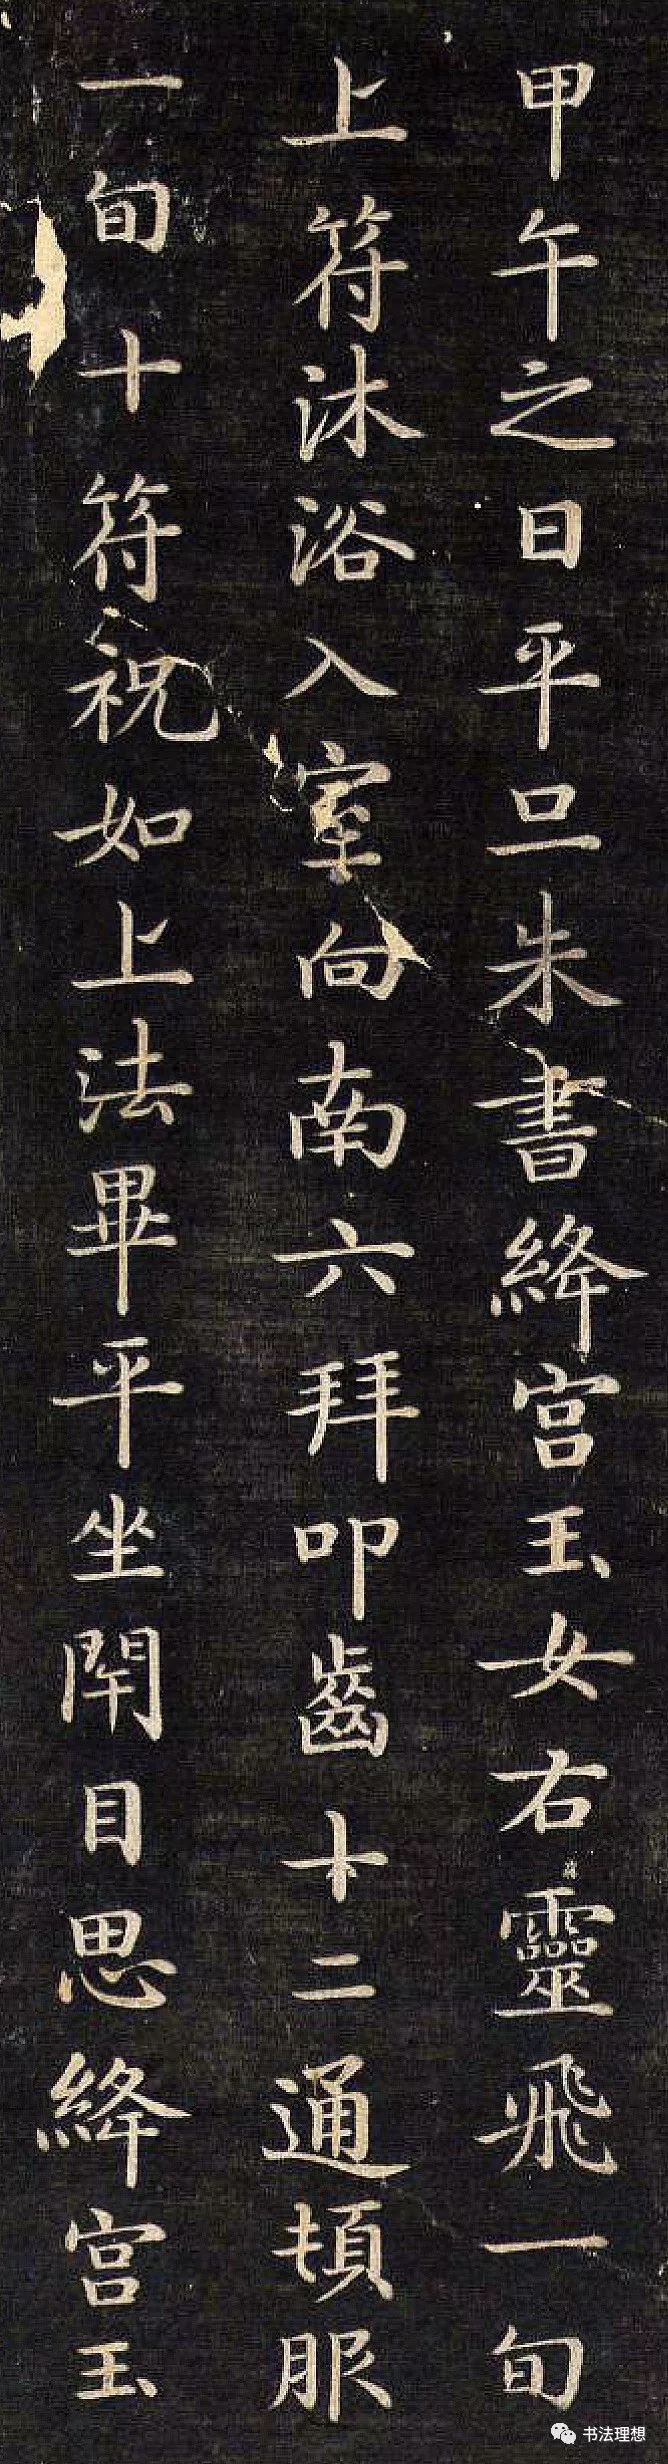 甲午之日平旦朱書絳宮玉女右靈飛一旬
上符沐浴入室向南六拜叩齒十二通頓服
一旬十符祝如上法畢平坐閇目思絳宮玉
书法理想